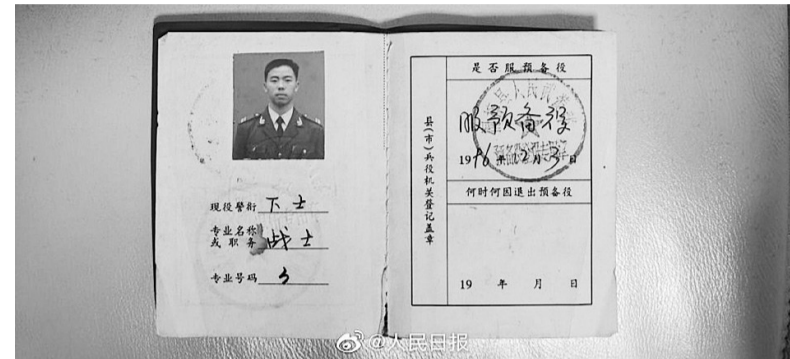 现役警衔 下士
专业名称
或职务 战士
专业号码
县(市)兵役机关登记盖章
是否服预备役
服预备役
1996年12月3日
何时何因退出预备役
19 年 月 日
@人民日报